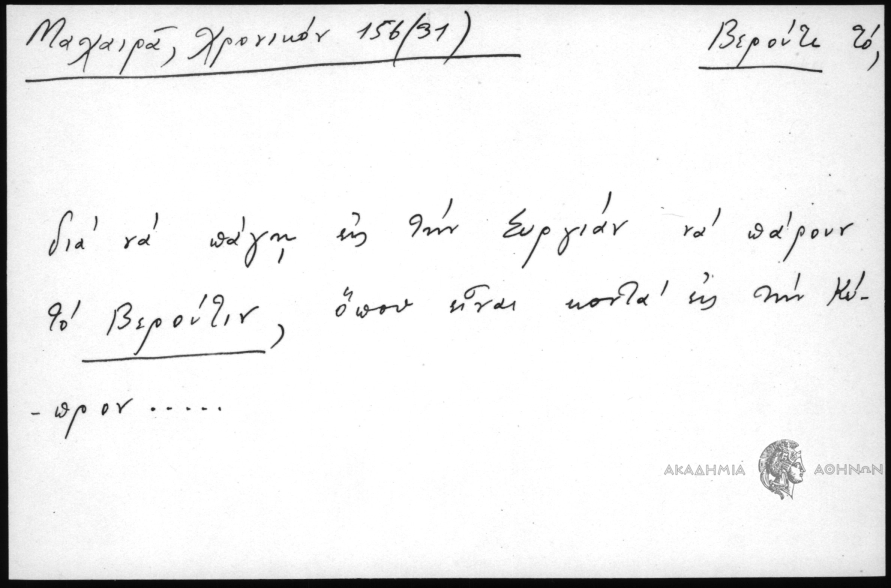 Μαχαιρᾶ, Χρονικόν 156(31)
Βερούτι τό,
διά νά πάγῃ εἰς τήν Συργιάν νά πάρουν
τό Βερούτιν, ὅπου εἶναι κοντά εἰς τήν Κύ-
-προν .....
ΑΚΑΔΗΜΙΑ ΑΘΗΝΩΝ